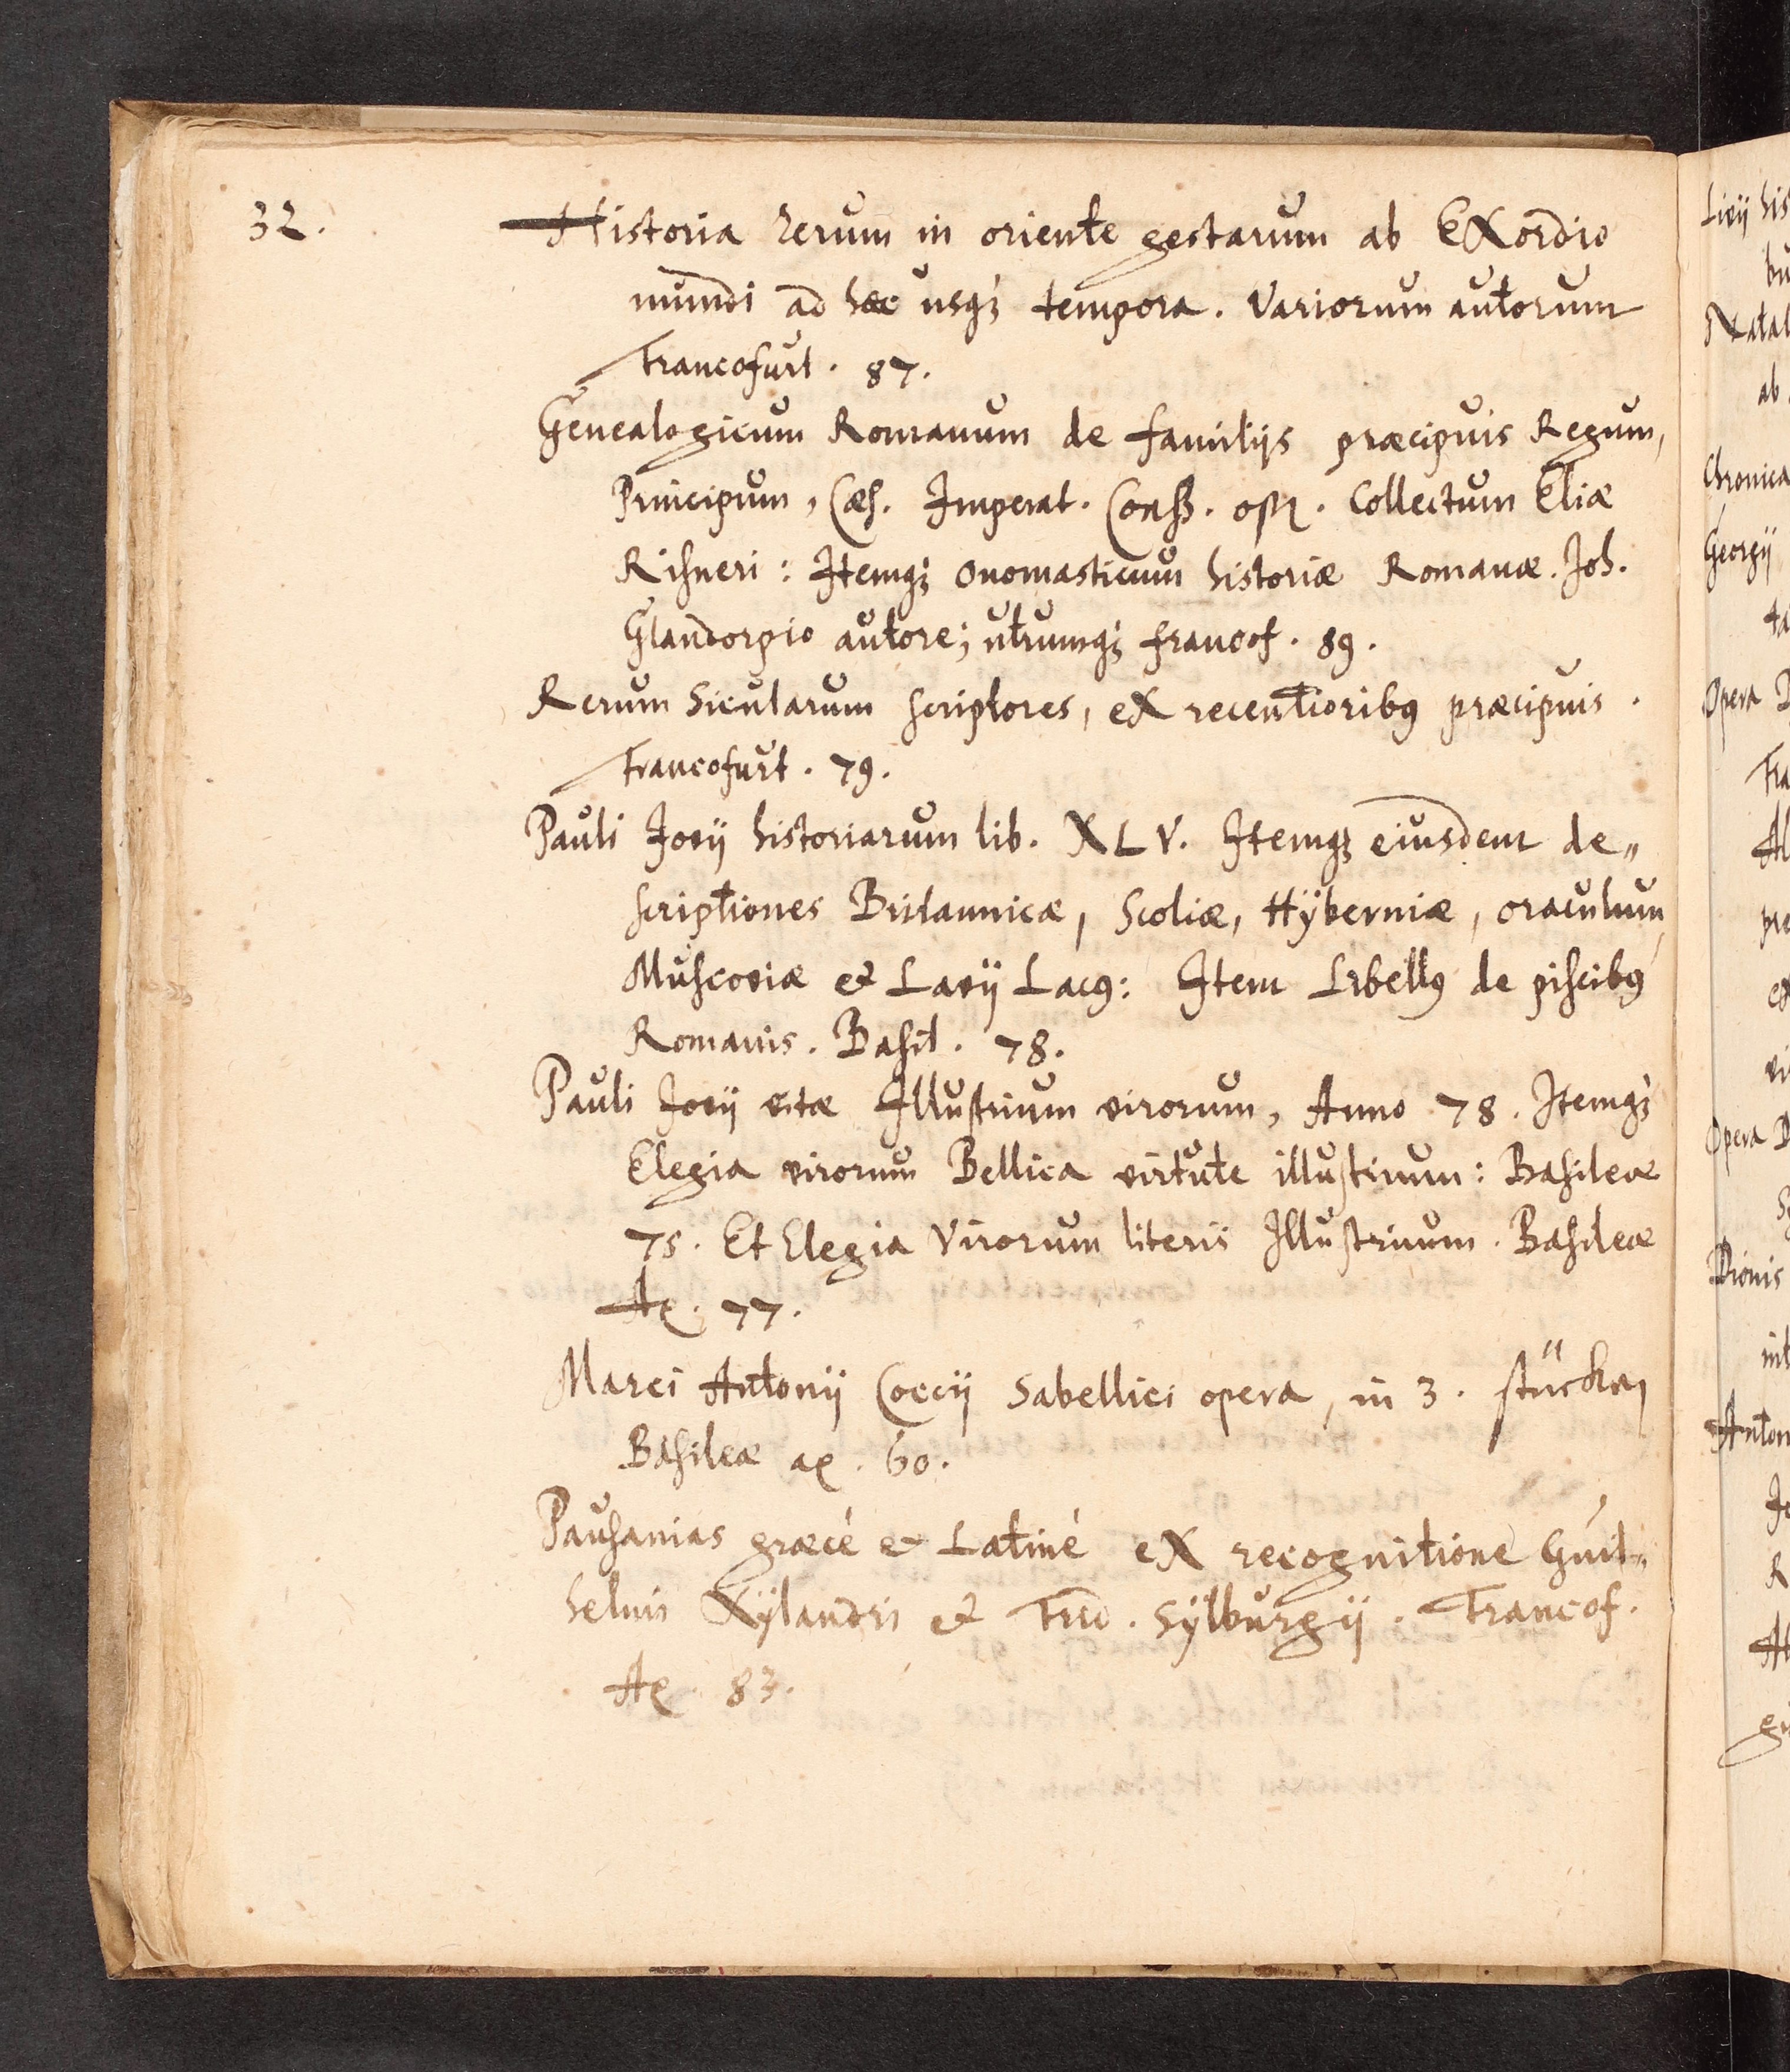 32.
Historia rerum in oriente gestarum ab EXordio
mundi ad hæc usqꝫ tempora. Variorum autorum
Francofurt. 87.
Genealogicum Romanum de familijs præcipuis Regum,
Principum, Cæs. Imperat. Consß. Collectum Eliæ
Risneri: Itemqꝫ Onomasticum historiæ Romanæ. Joh.
Glandorpio autore; utrumqꝫ francof. 89.
Rerum Sicularum scriptores, eX recentioribꝰ præcipuis.
Francofurt. 79.
Pauli Jovij historiarum lib. XLV. Itemqꝫ eiusdem de„
scriptiones Britannicæ, Scotiæ, Hÿberniæ, oraculum,
Muscoviæ et Lavij Lacꝰ: Item Libellꝰ de piscibꝰ
Romanis. Basil. 78.
Pauli Jovij vitæ Illustrium virorum, Anno 78. Itemqꝫ
Elegia virorum Bellica virtute illustrium: Basileæ
75. Et Elegia Virorum literis Illustrium. Basileæ
Aꝛ. 77.
Marci Antonij Coccij Sabellici opera, in 3. stücken
Basileæ aꝛ. 60.
Pausanias græcé et Latiné eX recognitione Guil„
helmi Xÿlandri et Frid. Sÿlburgij. Francof.
Aꝛ 83.
Livij his
Natal
ab
Chronica
Georgij
Opera D
Fra
Al
pre
eX
vi
Opera D
Dionis
Anton
R